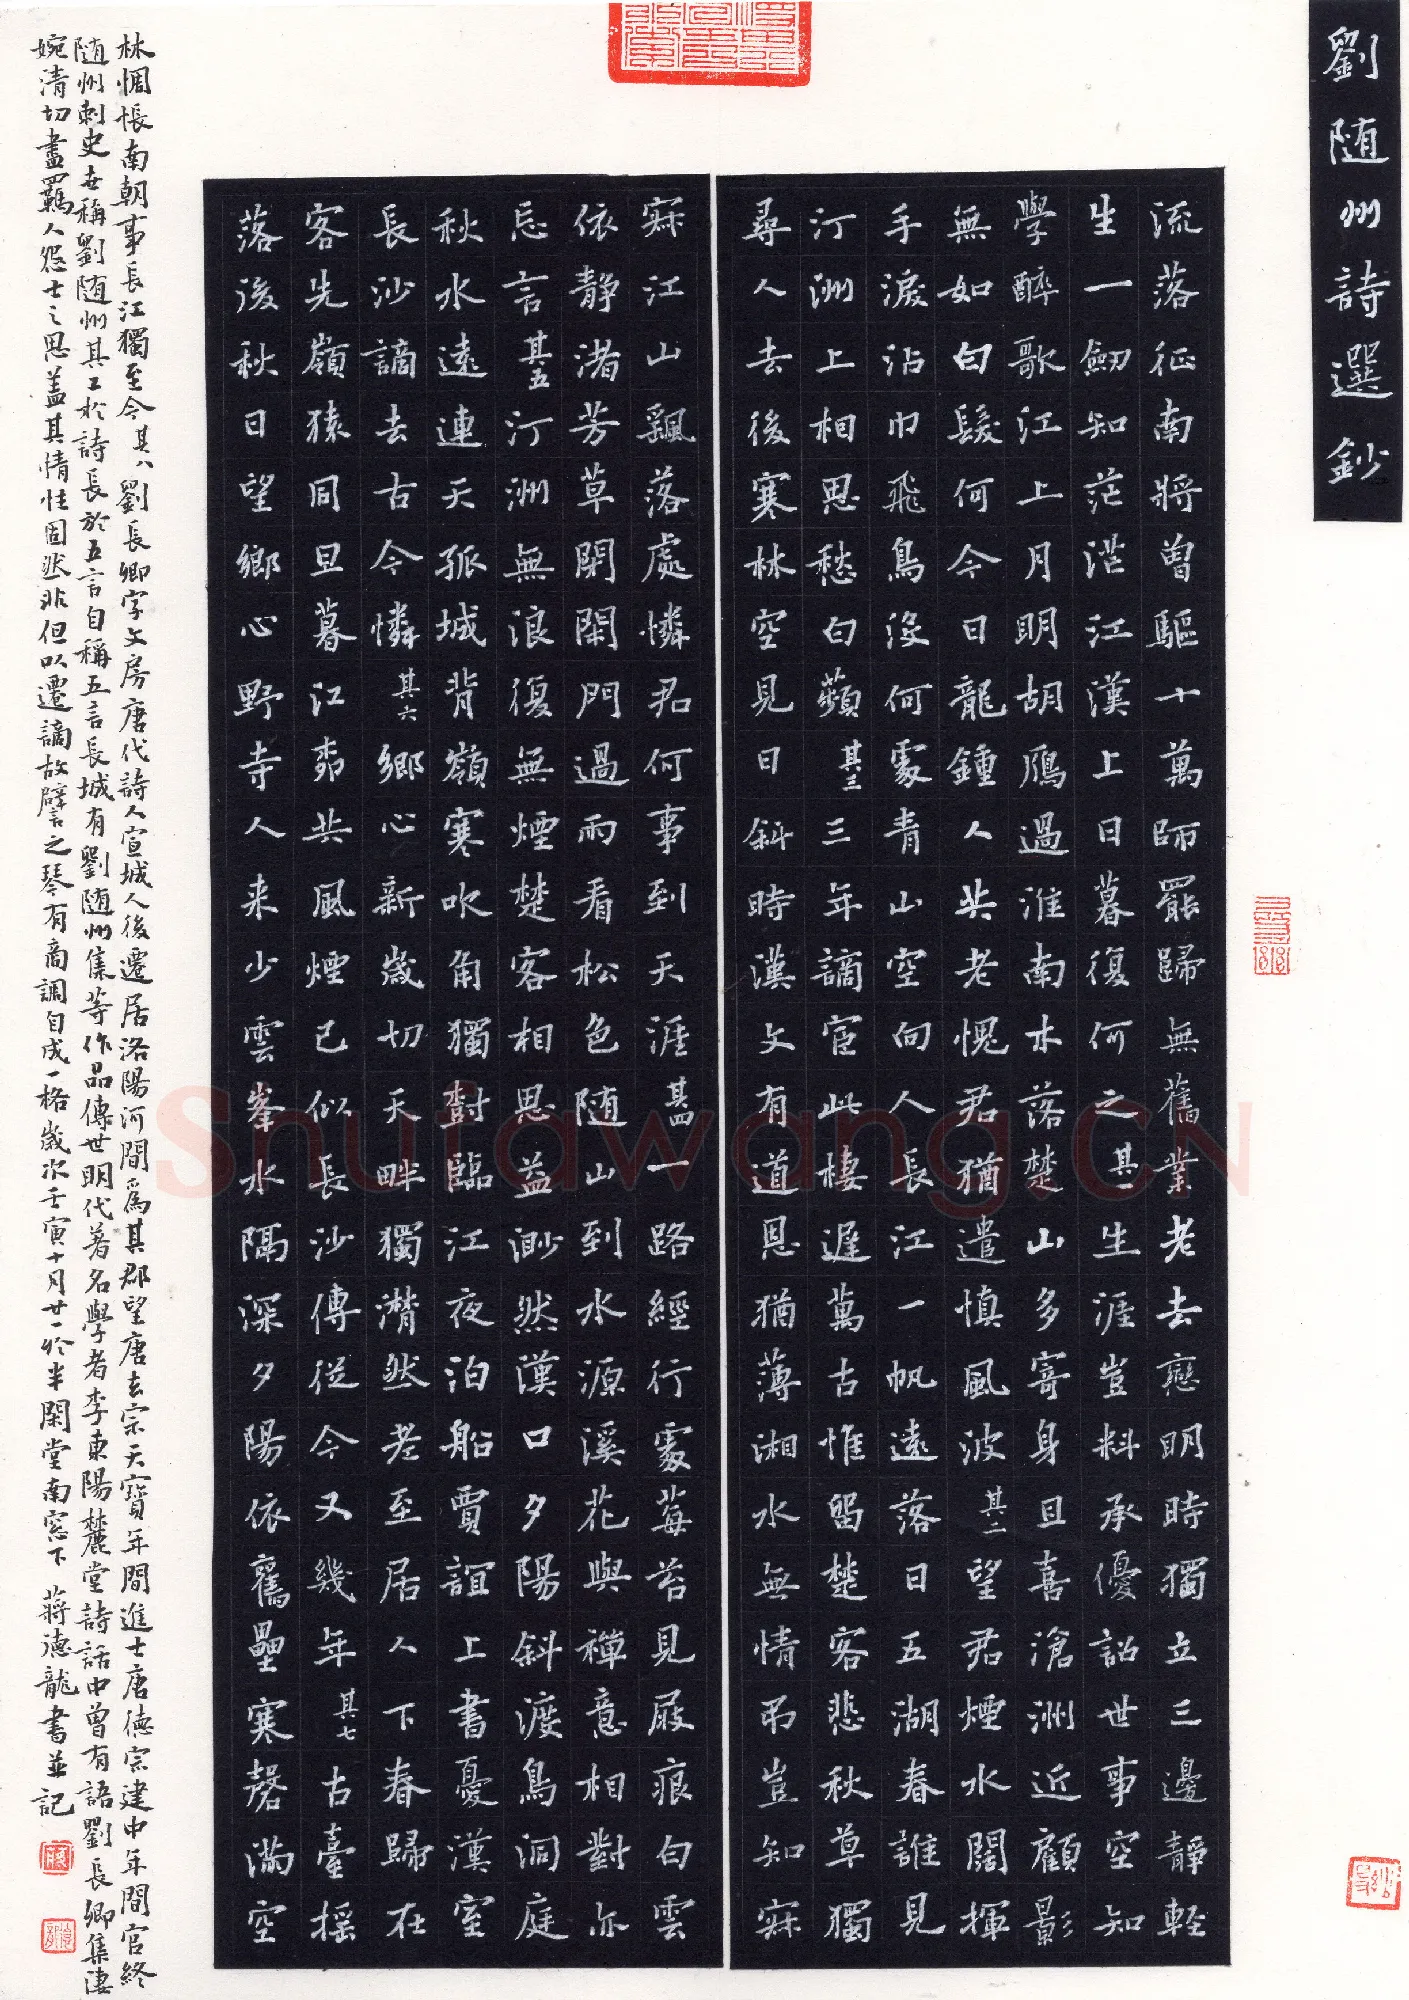 劉随州詩選鈔
流落征南將曾驅十萬師罷歸無舊業老去戀明時獨立三邊靜輕
生一劒知茫茫江漢上日暮復何之其一生涯豈料承優詔世事空知
學醉歌江上月明胡鴈過淮南木落楚山多寄身且喜滄洲近顧影
無如白髮何今日龍鍾人共老愧君猶遣慎風波其二望君煙水闊揮
手淚沾巾飛鳥沒何處青山空向人長江一帆遠落日五湖春誰見
汀洲上相思愁白蘋其三三年謫宦此棲遲萬古惟留楚客悲秋草獨
尋人去後寒林空見日斜時漢文有道恩猶薄湘水無情弔豈知寂
寂江山飄落處憐君何事到天涯其四一路經行處莓苔見屐痕白雲
依静渚芳草閉閑門過雨看松色随山到水源溪花與禪意相對亦
忘言其五汀洲無浪復無煙楚客相思益渺然漢口夕陽斜渡鳥洞庭
秋水遠連天孤城背嶺寒吹角獨對臨江夜泊船賈誼上書憂漢室
長沙謫去古今憐其六鄉心新歲切天畔獨潸然老至居人下春歸在
客先嶺猿同旦暮江柳共風煙已似長沙傅從今又幾年其七古臺摇
落後秋日望鄉心野寺人来少雲峯水隔深夕陽依舊壘寒磬滿空
林惆悵南朝事長江獨至今其八劉長卿字文房唐代詩人宣城人後遷居洛陽河間爲其郡望唐玄宗天寶年間進士唐德宗建中年間官終
随州刺史世稱劉随州其工於詩長於五言自稱五言長城有劉随州集等作品傳世明代著名學者李東陽麓堂詩話中曾有語劉長卿集淒
婉清切盡羈人怨士之思盖其情性固然非但以遷謫故譬之琴有商調自成一格歲次壬寅十月廿一於半閑堂南窓下 蔣德龍書並記
Shufawang.CN